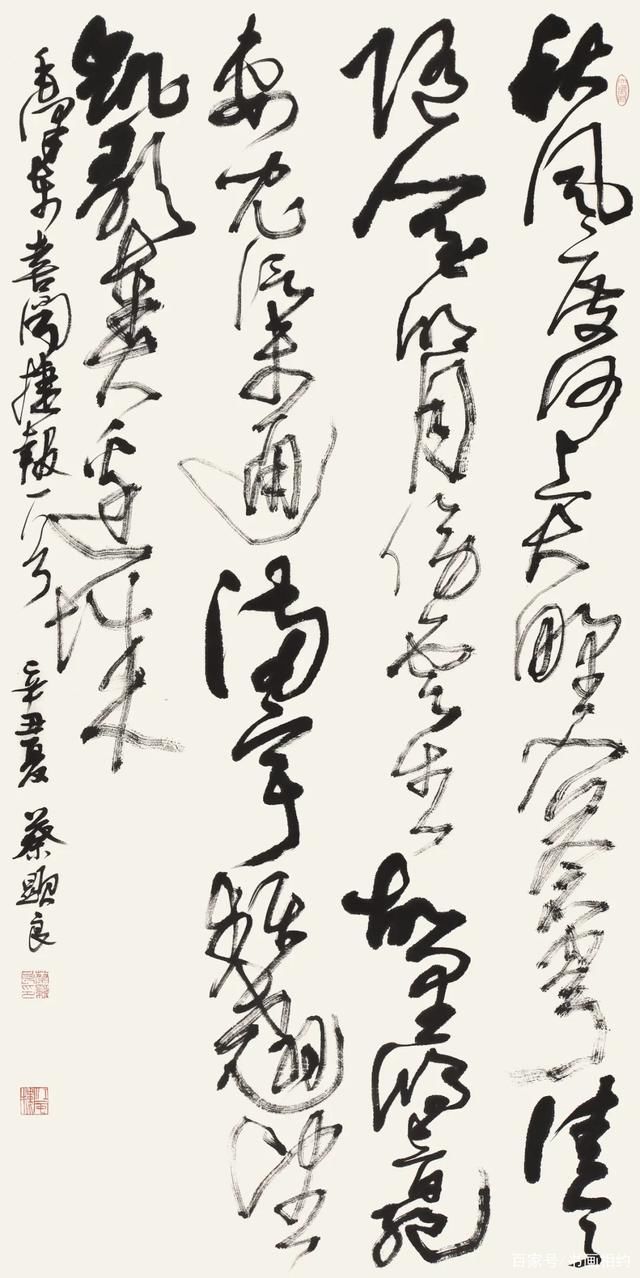 秋風度河上大野入苍穹佳令
随人至明月傍雲生故里鸿音絕
妻儿信未通满宇频翘望
凯歌奏边城
毛泽东喜闻捷報一首 辛丑夏 蔡顯良
百家号/书画相约